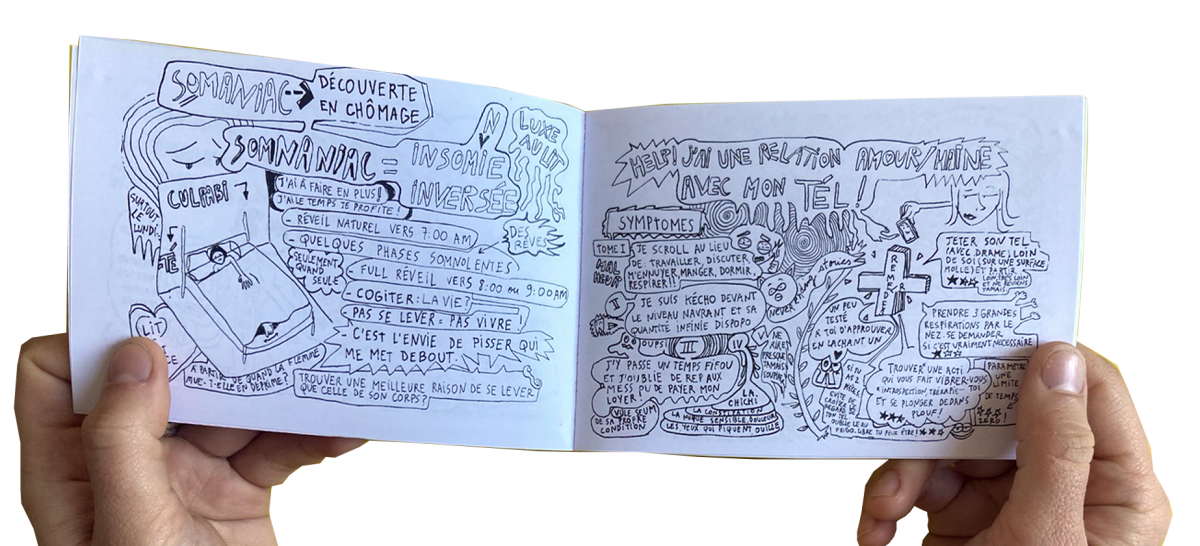 SOMANIAC
DÉCOUVERTE
EN CHÔMAGE
SOMNANIAC = INSOMIE
N
INVERSÉE
LUXE
AU LIT
CULPABI
TÉ
SURTOUT
LE
LUNDI.
J'AI À FAIRE EN PLUS!
J'AI LE TEMPS JE PROFITE!
- RÉVEIL NATUREL VERS 7:00 AM
- QUELQUES PHASES SOMNOLENTES
DES
RÊVES
SEULEMENT
QUAND
SEULE
FULL RÉVEIL VERS 8:00 OU 9:00AM
- COGITER: LA VIE?
PAS SE LEVER = PAS VIVRE!
- C'EST L'ENVIE DE PISSER QUI
ME MET DEBOUT.
LIT
À PARTIR DE QUAND LA FLEMME
MUE-T-ELLE EN DÉPRIME?
TROUVER UNE MEILLEURE RAISON DE SE LEVER
QUE CELLE DE SON CORPS?
HELP! J'AI UNE RELATION AMOUR/HAINE
AVEC MON TÉL!
SYMPTOMES
TOME I
JE SCROLL AU LIEU
DE TRAVAILLER, DISCUTER
M'ENNUYER, MANGER, DORMIR,
RESPIRER!!
II
JE SUIS KÉCHO DEVANT
LE NIVEAU NAVRANT ET SA
QUANTITE INFINIE DISPOPO
OUPS!
III
IV
J'Y PASSE UN TEMPS FIFOU
ET J'OUBLIE DE REP AUX
MESS PU DE PAYER MON
LOYER!
VU LE SEUM
DE SA PROPRE
CONDITION
LA
CHICHI
LA CONSTIPATION
LA NUQUE SENSIBLE, DOULEUR
LES YEUX QUI PIQUENT OUILLE
stories
REMEDE
R
JETER SON TEL
(AVEC DRAME) LOIN
DE SOI (SUR UNE SURFACE
MOLLE) ET PARTIR
LOIN TRES LOIN
ET NE REVIENS
JAMAIS
PRENDRE 3 GRANDES
RESPIRATIONS PAR LE
NEZ. SE DEMANDER
SI C'EST VRAIMENT NÉCESSAIRE
UN PEU
TESTÉ
À TOI D'APPROUVER
EN LACHANT UN
TROUVER UNE ACTI
QUI VOUS FAIT VIBRER-VOUS
INTROSPECTION, THÉRAPIS-TOI
ET SE PLONGER DEDANS
PLOUF!
PARAMÉTRE
UNE
LIMITE
DE TEMPS
ZÉRO!